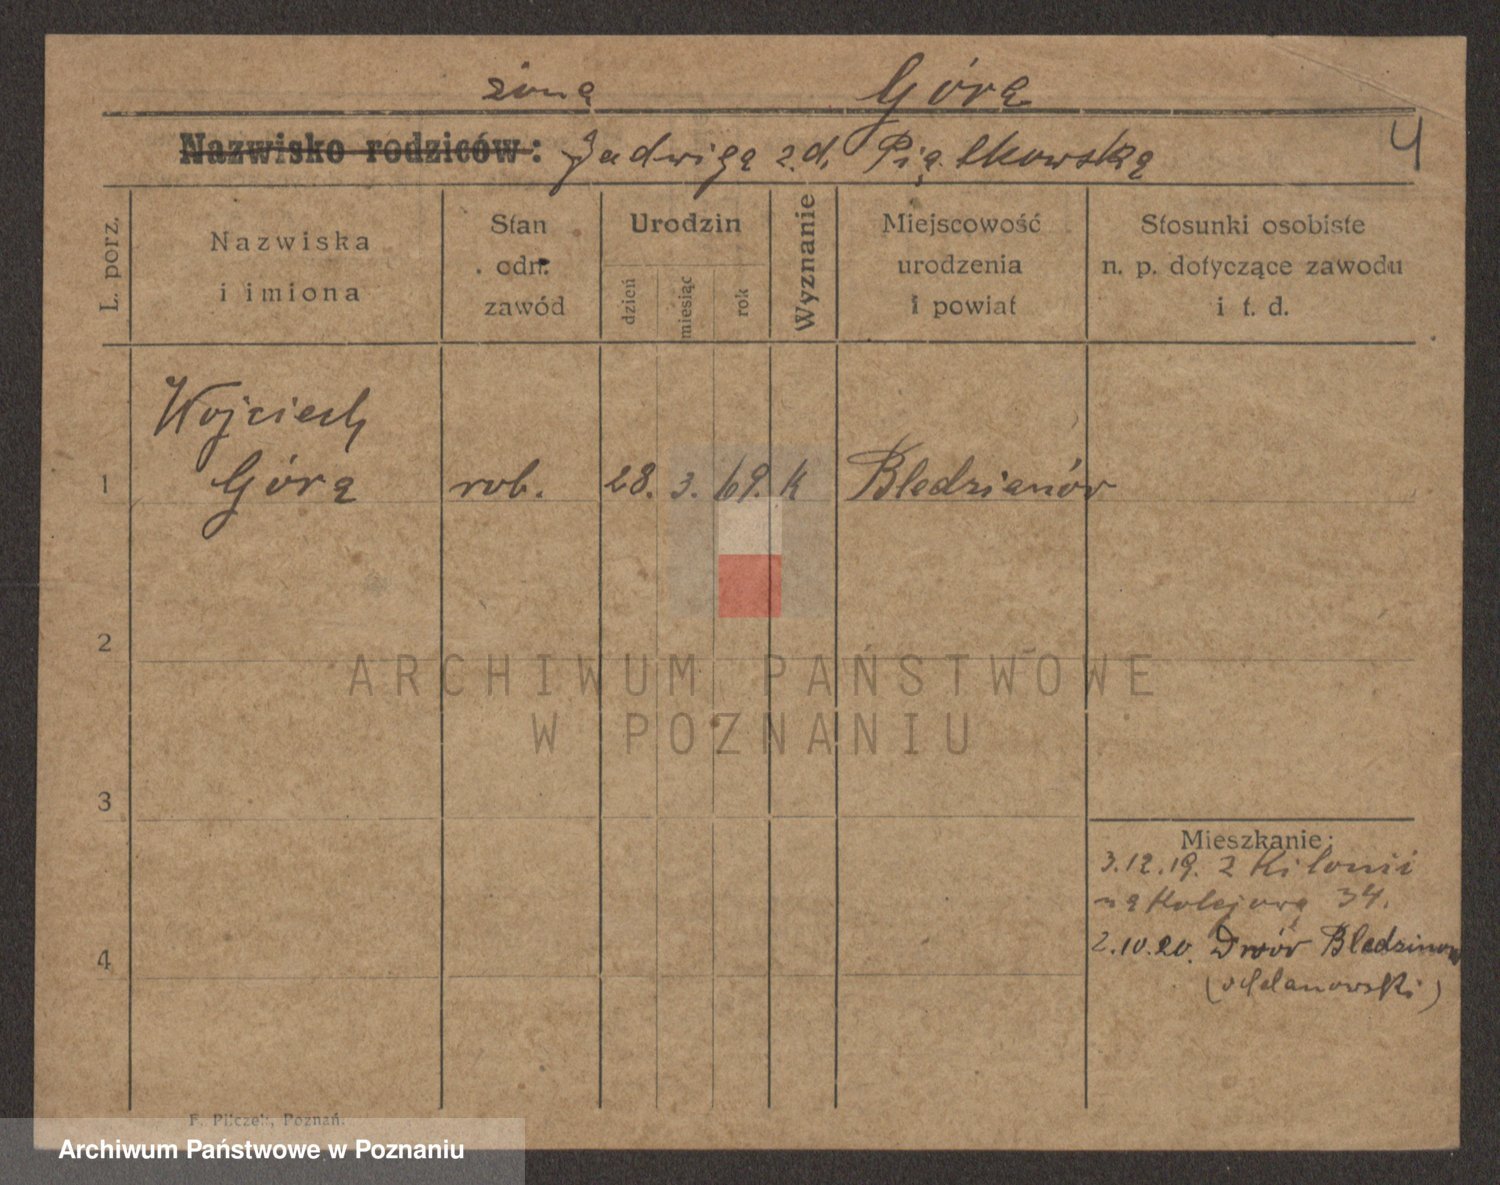 żona Góra
Nazwisko rodziców: Jadwiga z.d. Piątkowska
4
L. porz.
Nazwiska
i imiona
Stan
odn.
zawód
Urodzin
dzień
miesiąc
rok
Wyznanie
Miejscowość
urodzenia
i powiat
Stosunki osobiste
n. p. dotyczące zawodu
i t. d.
Wojciech
1 Góra rob. 28. 3. 69. k Bledzianów
2
ARCHIWUM PAŃSTWOWE
W POZNANIU
3
Mieszkanie:
3.12.19. z Kilonii
na Kolejową 34.
4 2.10.20. Dwór Bledzianow
(odolanowski)
F. Pilczek, Poznań.
Archiwum Państwowe w Poznaniu